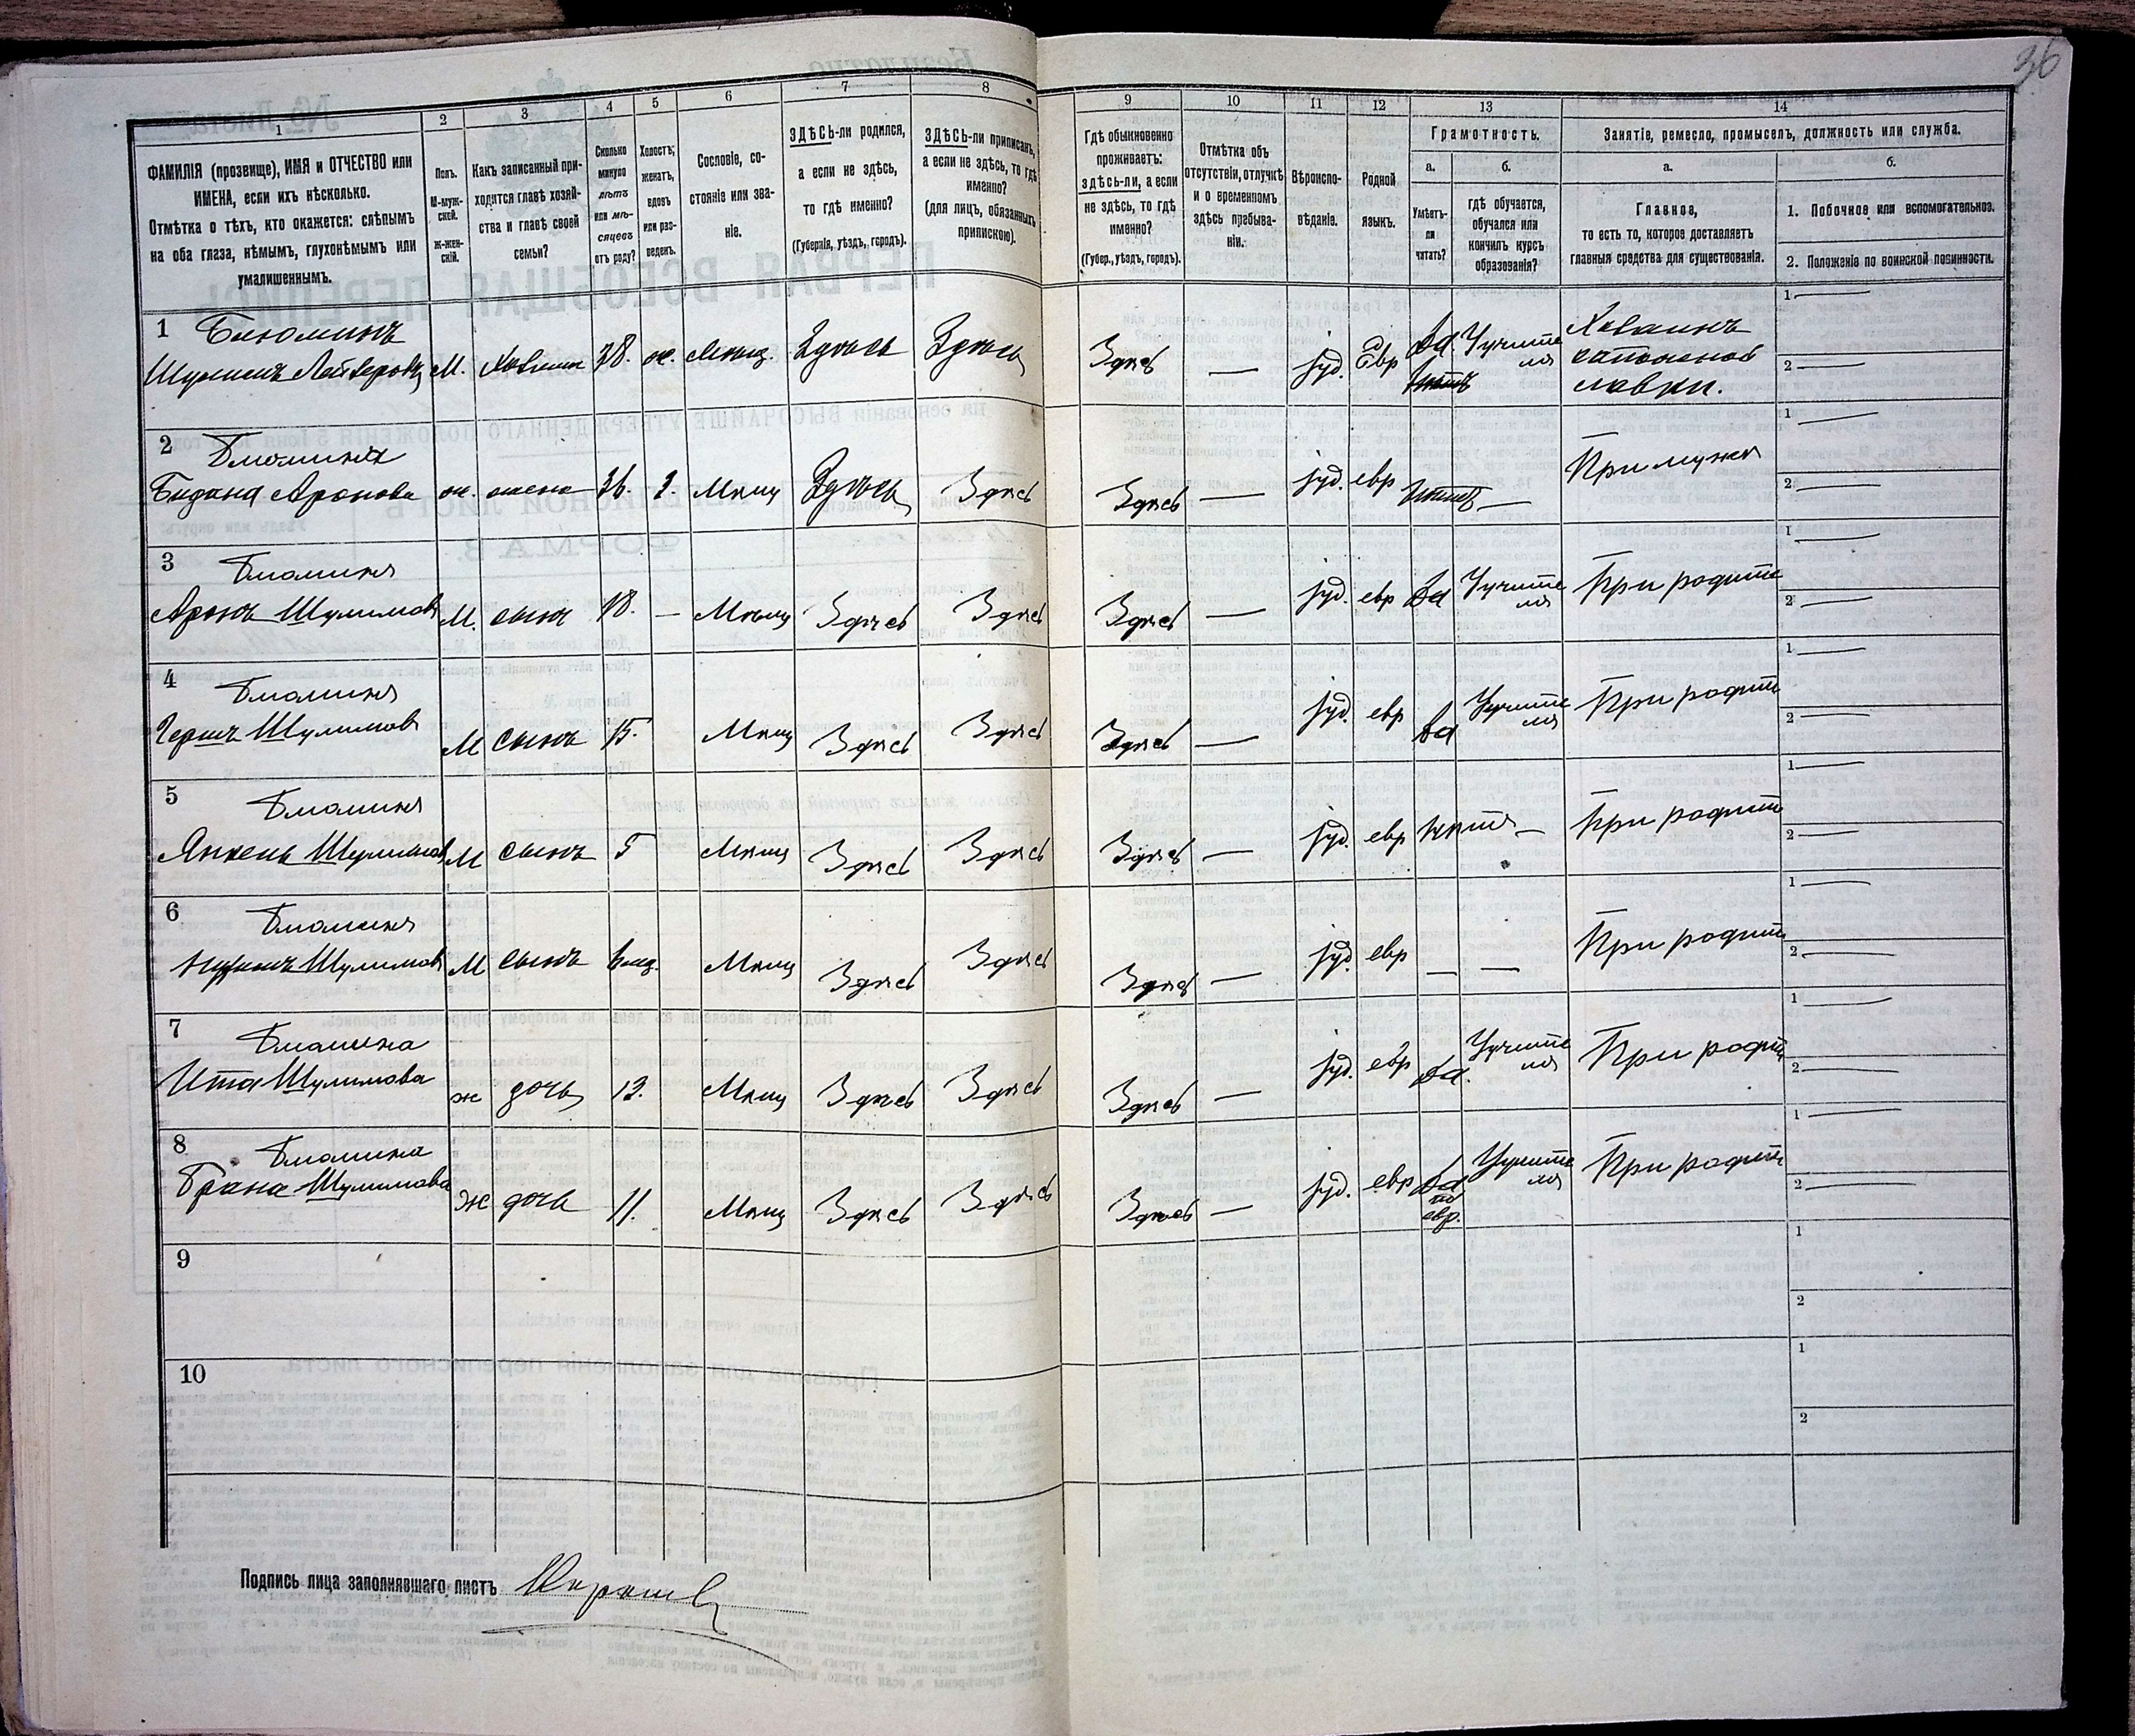 36
1
2
3
4
5
6
7
8
9
10
11
12
13
14
ФАМИЛІЯ (прозвище), ИМЯ и ОТЧЕСТВО или
ИМЕНА, если ихъ нѣсколько.
Отмѣтка о тѣхъ, кто окажется: слѣпымъ
на оба глаза, нѣмымъ, глухонѣмымъ или
умалишеннымъ.
Полъ.
М-муж-
ской.
Ж-жен-
скій.
Какъ записанный при-
ходится главѣ хозяй-
ства и главѣ своей
семьи?
Сколько
минуло
лѣтъ
или мѣ-
сяцевъ
отъ роду?
Холостъ,
женатъ,
вдовъ
или раз-
веденъ.
Сословіе, со-
стояніе или зва-
ніе.
ЗДѢСЬ-ли родился,
а если не здѣсь,
то гдѣ именно?
(Губернія, уѣздъ, городъ).
ЗДѢСЬ-ли приписанъ,
а если не здѣсь, то гдѣ
именно?
(для лицъ, обязанныхъ
припискою).
Гдѣ обыкновенно
проживаетъ:
здѣсь-ли, а если
не здѣсь, то гдѣ
именно?
(Губер., уѣздъ, городъ).
Отмѣтка объ
отсутствіи, отлучкѣ
и о временномъ
здѣсь пребыва-
ніи.
Вѣроиспо-
вѣданіе.
Родной
языкъ.
Грамотность.
а.
б.
Умѣетъ-
ли
читать?
гдѣ обучается,
обучался или
кончилъ курсъ
образованія?
Занятіе, ремесло, промыселъ, должность или служба.
а.
б.
Главное,
то есть то, которое доставляетъ
главныя средства для существованія.
1. Побочное или вспомогательное.
2. Положеніе по воинской повинности.
1 Блюминъ
Шулимъ М. Хозяинъ 38. ж. Мѣщ. Здѣсь Здѣсь Здѣсь — іуд. Евр Да Учите
ля
Хозаинъ
лавки.
1 —
2 —
2 Блюмина
Аронова ж. жена 36. З. Мѣщ Здѣсь Здѣсь Здѣсь — іуд. евр Нѣтъ — При мужѣ
1 —
2 —
3 Блюминъ
Аронъ Шулимовъ М. сынъ 18. — Мѣщ Здѣсь Здѣсь Здѣсь — іуд. евр Да Учите
ля При родите
1 —
2 —
4 Блюминъ
Гершъ Шулимовъ М сынъ 15. Мѣщ Здѣсь Здѣсь Здѣсь — іуд. евр Да Учите
ля При родит
1 —
2 —
5 Блюминъ
Янкель Шулимов М сынъ 5 Мѣщ Здѣсь Здѣсь Здѣсь — іуд. евр Нѣтъ — При родит
1 —
2 —
6 Блюминъ
Шулимовъ М сынъ Мѣщ Здѣсь Здѣсь Здѣсь — іуд. евр — — При родит
1 —
2 —
7 Блюмина
Ита Шулимова ж дочь 13. Мѣщ Здѣсь Здѣсь Здѣсь — іуд. евр Да. Учите
ля При родит
1 —
2 —
8 Блюмина
Брана Шулимова Ж дочь 11. Мѣщ Здѣсь Здѣсь Здѣсь — іуд. евр Да
по
евр.
Учите
ля При родит
1 —
2 —
9
1
2
10
1
2
Подпись лица заполнявшаго листъ